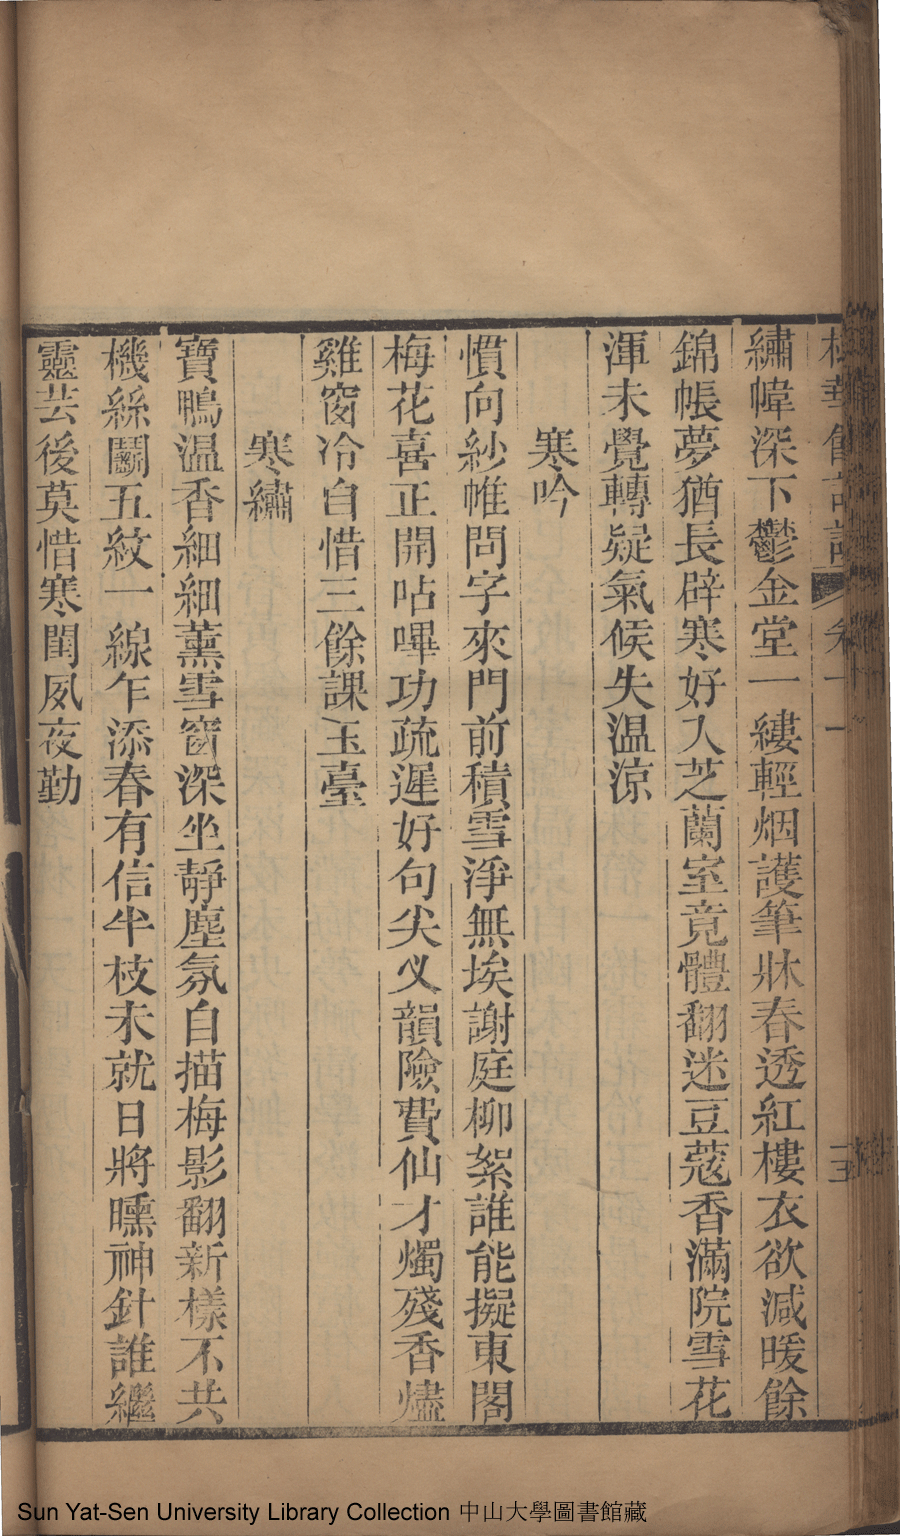 繡幃深下鬱金堂一縷輕烟護筆牀春透紅樓衣欲減暖餘
錦帳夢猶長辟寒好入芝蘭室竟體翻迷豆蔻香滿院雪花
渾未覺轉疑氣候失温涼
寒吟
慣向紗帷問字來門前積雪淨無埃謝庭柳絮誰能擬東閣
梅花喜正開呫嗶功疏遲好句尖叉韻險費仙才燭殘香燼
雞窗冷自惜三餘課玉臺
寒繡
寶鴨温香細細薰雪窗深坐靜塵氛自描梅影翻新樣不共
機絲鬭五紋一線乍添春有信半枝未就日將曛神針誰繼
靈芸後莫惜寒閨夙夜勤
Sun Yat-Sen University Library Collection 中山大學圖書館藏